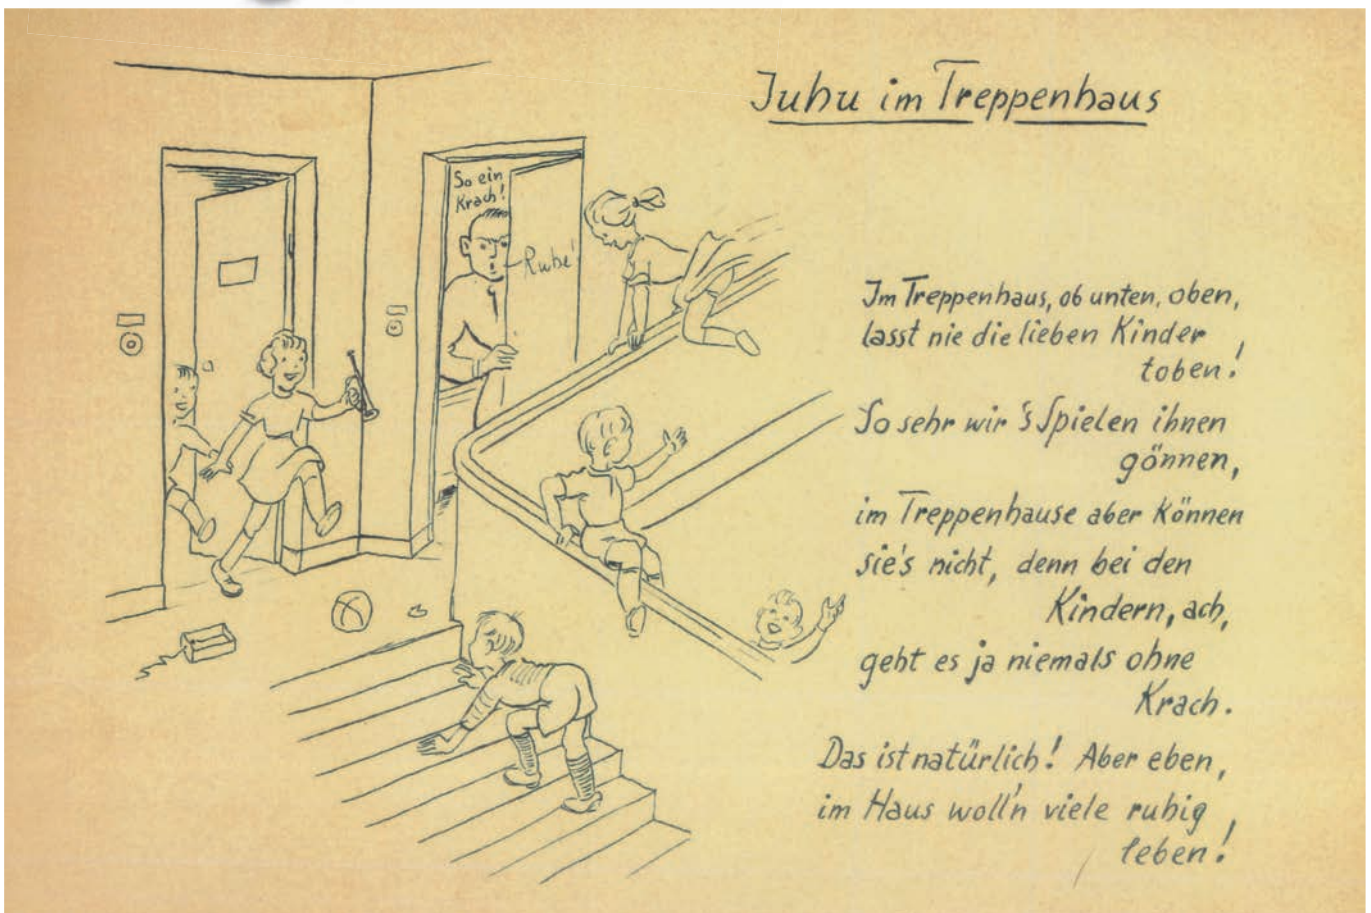 Juhu im Treppenhaus
So ein
Krach!
Ruhe!
Im Treppenhaus, ob unten, oben,
lasst nie die lieben Kinder
toben!
So sehr wir's Spielen ihnen
gönnen,
im Treppenhause aber können
sie's nicht, denn bei den
Kindern, ach,
geht es ja niemals ohne
Krach.
Das ist natürlich! Aber eben,
im Haus woll'n viele ruhig
leben!